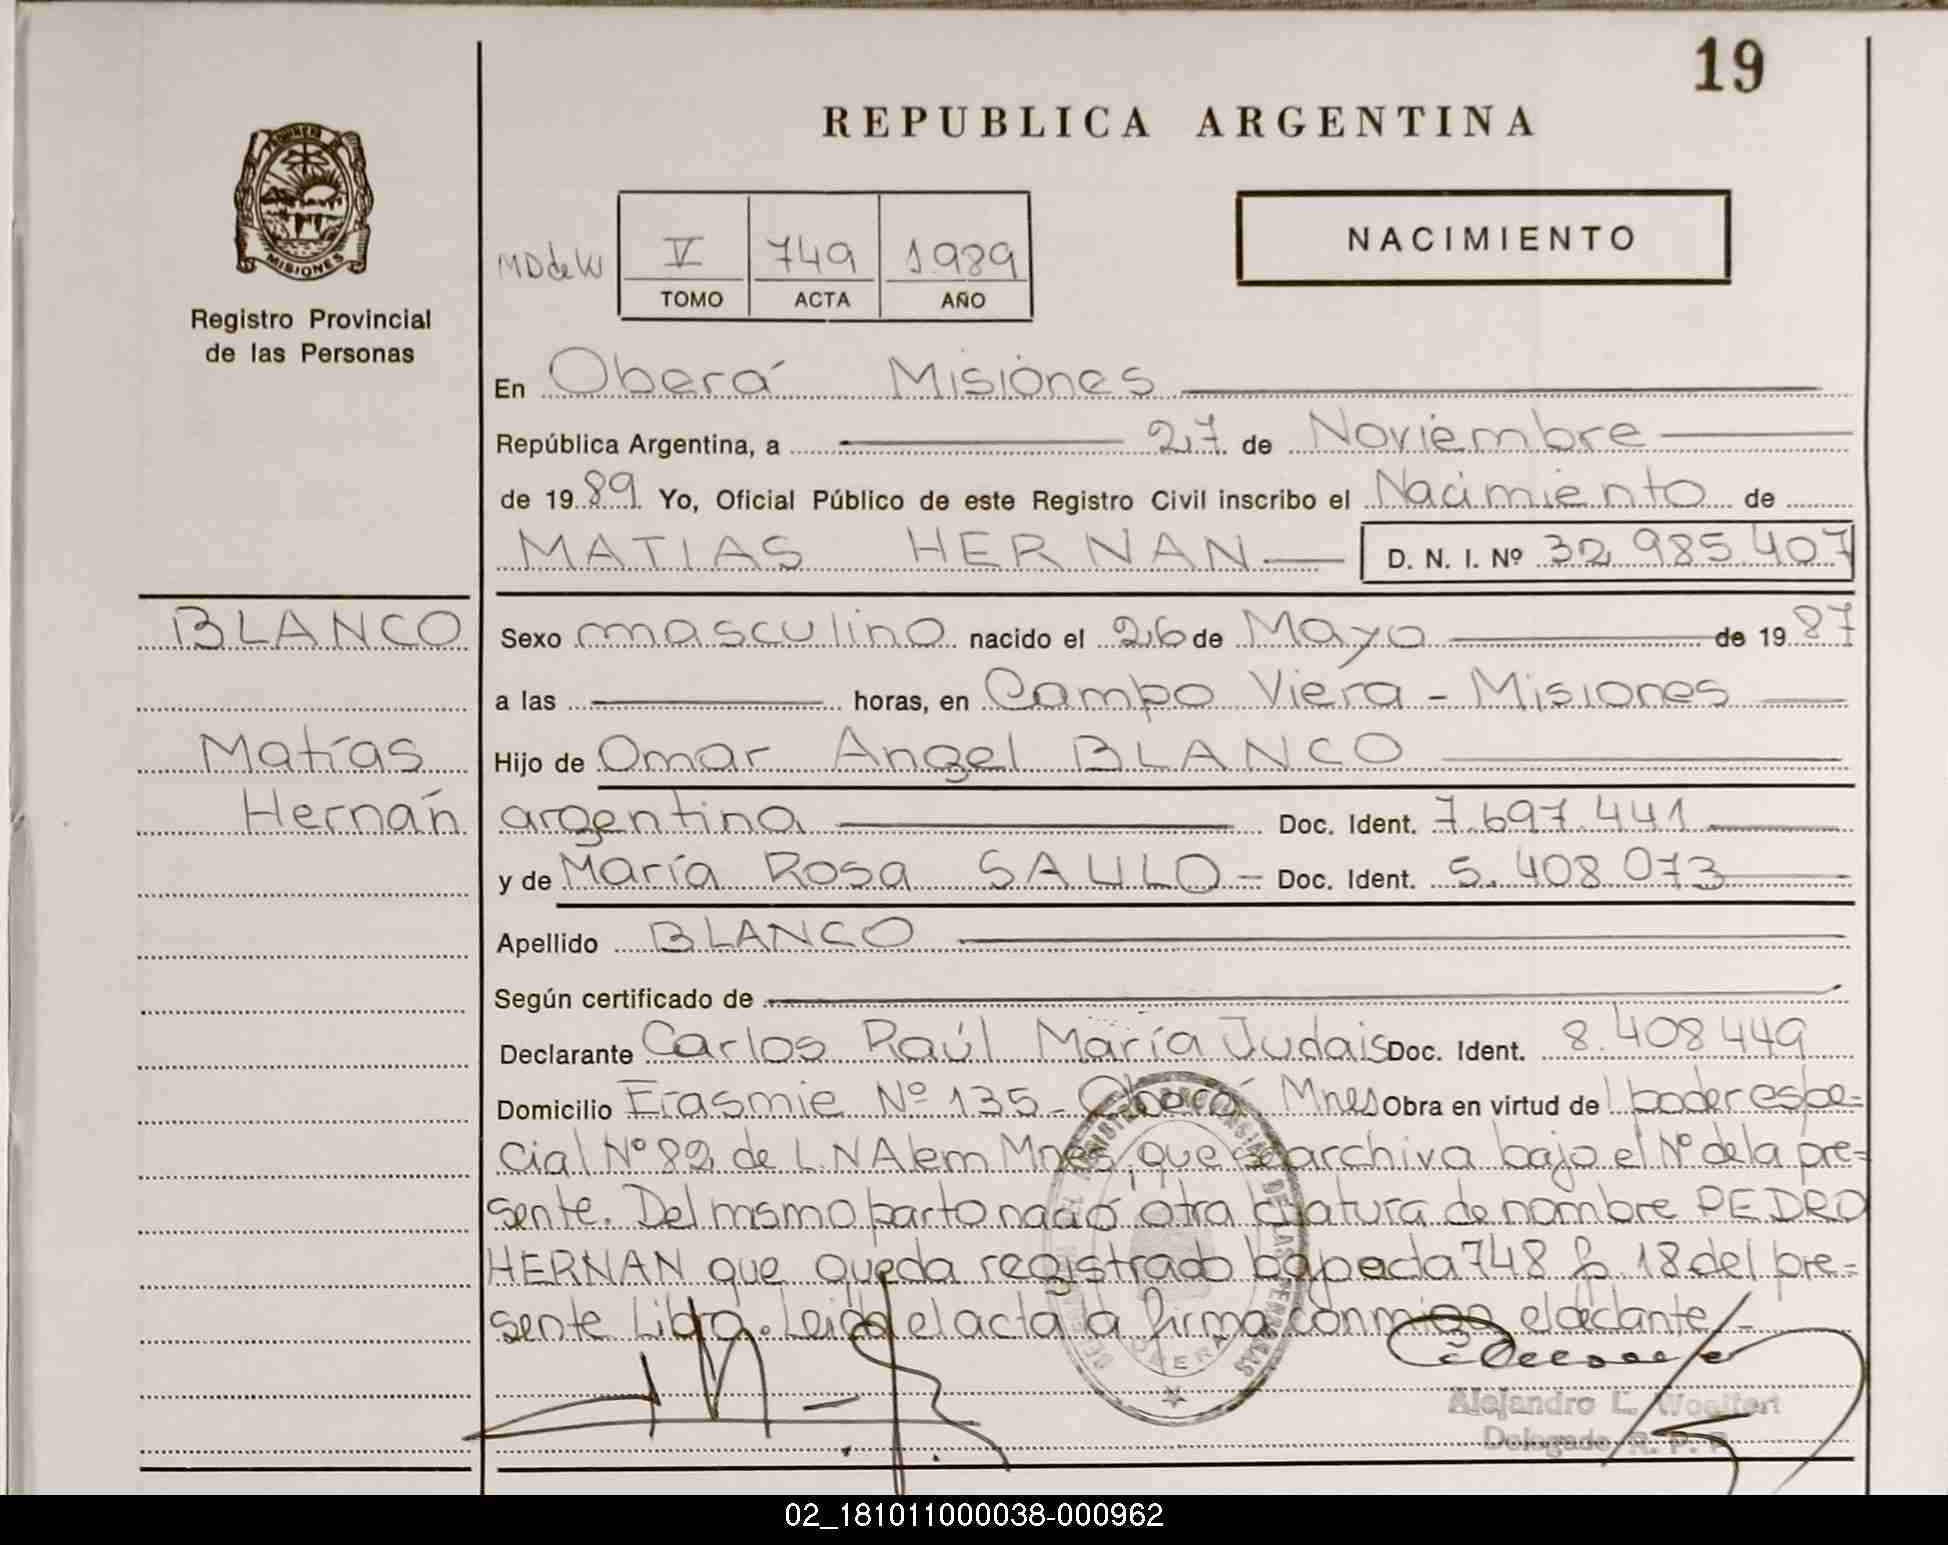 19
REPUBLICA ARGENTINA
MISIONES
Registro Provincial
de las Personas
NACIMIENTO
MD de W V 749 1989
TOMO ACTA AÑO
En Oberá Misiones
República Argentina, a 27 de Noviembre
de 1989 Yo, Oficial Público de este Registro Civil inscribo el Nacimiento de
MATIAS HERNAN D. N. I. Nº 32.985.407
BLANCO
Matías
Hernán
Sexo masculino nacido el 26 de Mayo de 1987
a las horas, en Campo Viera - Misiones
Hijo de Omar Angel BLANCO
argentina Doc. Ident. 7.697.441
y de María Rosa SAULO - Doc. Ident. 5.408.073
Apellido BLANCO
Según certificado de
Declarante Carlos Raúl María Judais Doc. Ident. 8.408449
Domicilio Erasmie Nº 135 - Oberá Mnes Obra en virtud del poder espe=
cial Nº 82 de L.N Alem Mnes, que se archiva bajo el Nº de la pre=
sente. Del mismo parto nació otra criatura de nombre PEDRO
HERNAN que queda registrado bajo acta 748 f. 18 del pre=
sente Libro. Leida el acta la firma conmigo el declante -
Alejandro L. Woelfert
Delegado R. P. P.
02_181011000038-000962